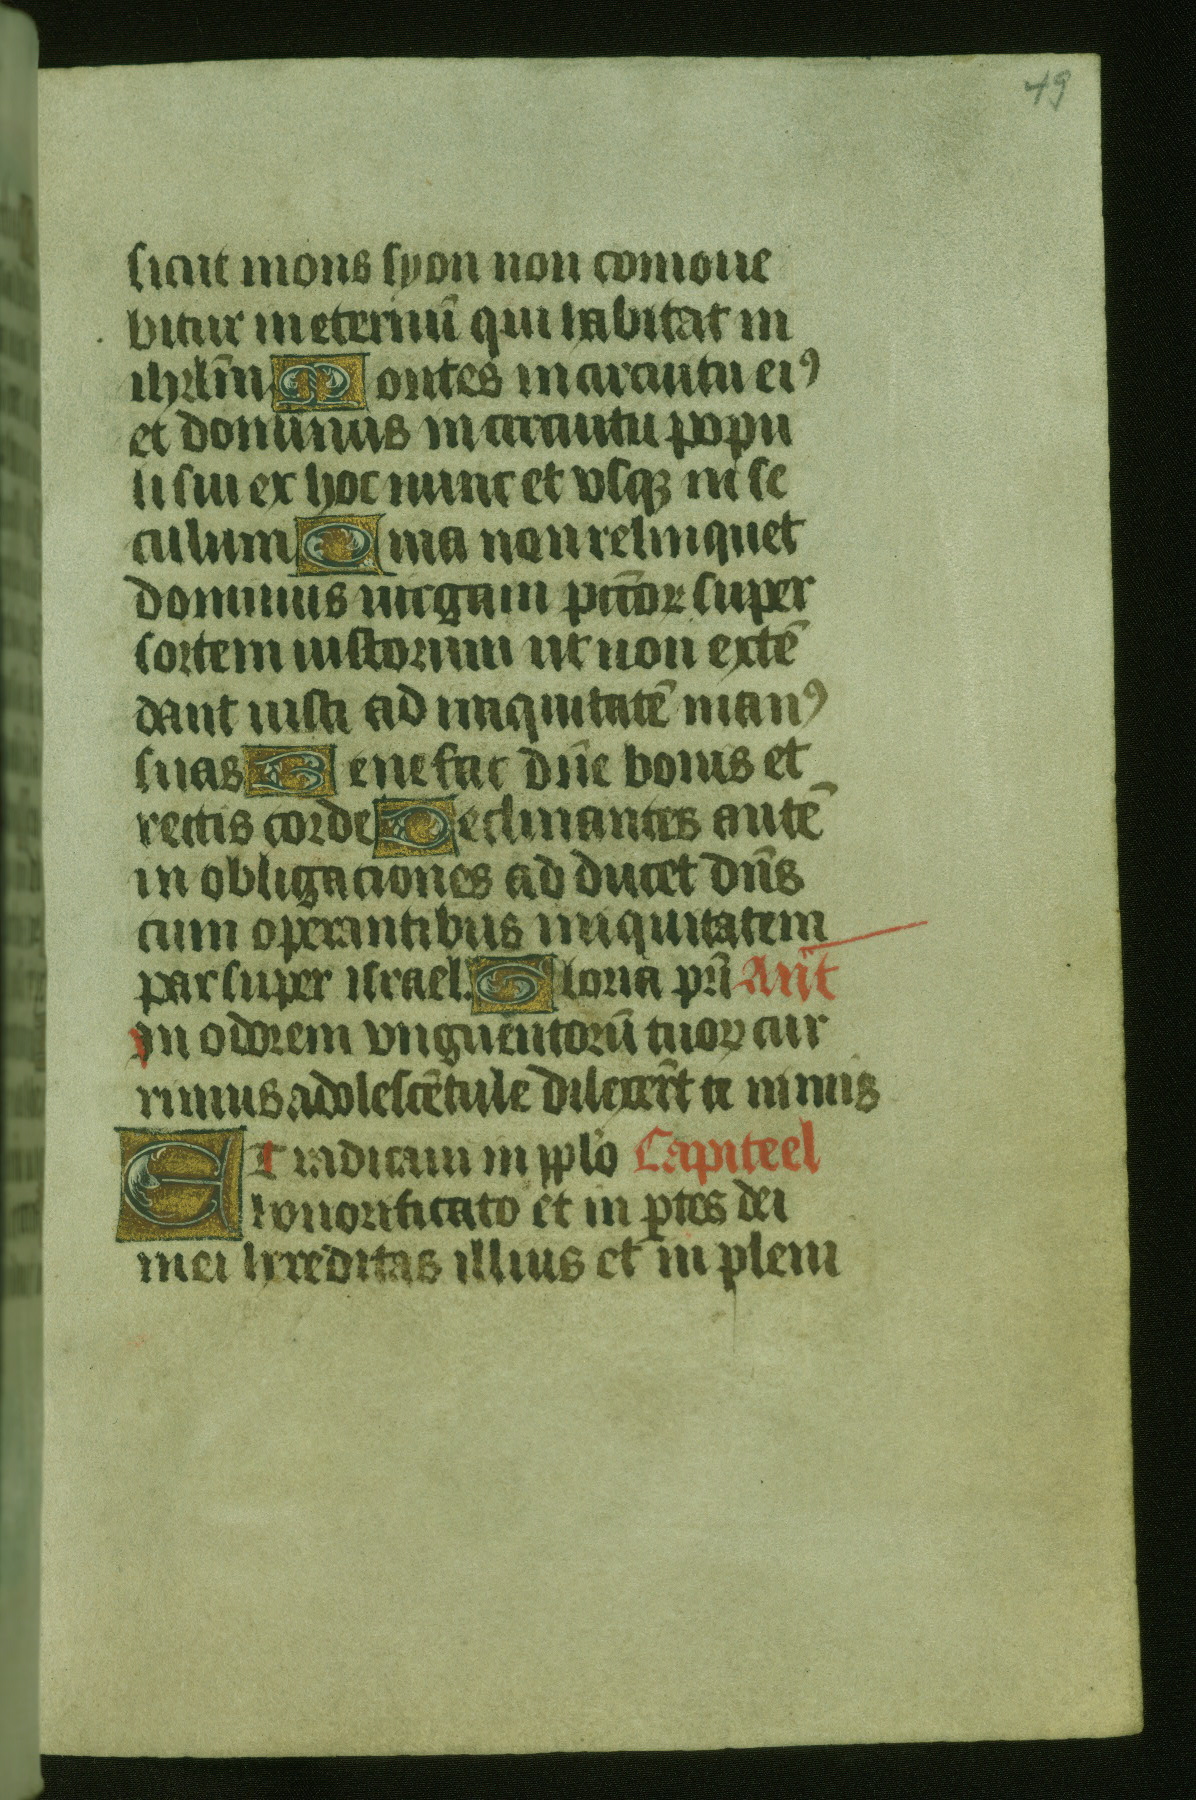 49
sicut mons syon non comoue
bitur in eternū qui habitat in
ihrl̄m Montes in circuitu eiꝰ
et dominus in circuitu popu
li sui ex hoc nunc et vsqꝫ in se
culum Quia non relinquet
dominus uirgam pctōꝝ super
sortem iustorum ut non extē
dant iusti ad iniquitatē manꝰ
suas Benefac dn̄e bonis et
rectis corde Declinantes autē
in obligaciones ad ducet dn̄s
cum operantibus iniquitatem
pax super israel. Gloria pr̄i Ant̄
In odorem vnguentorū tuoꝝ cur
rimus adolescētule dilexer̄t te nimis
Et radicaui in pplo Capiteel
honorificato et in ꝑtes dei
mei hereditas illius et in pleni